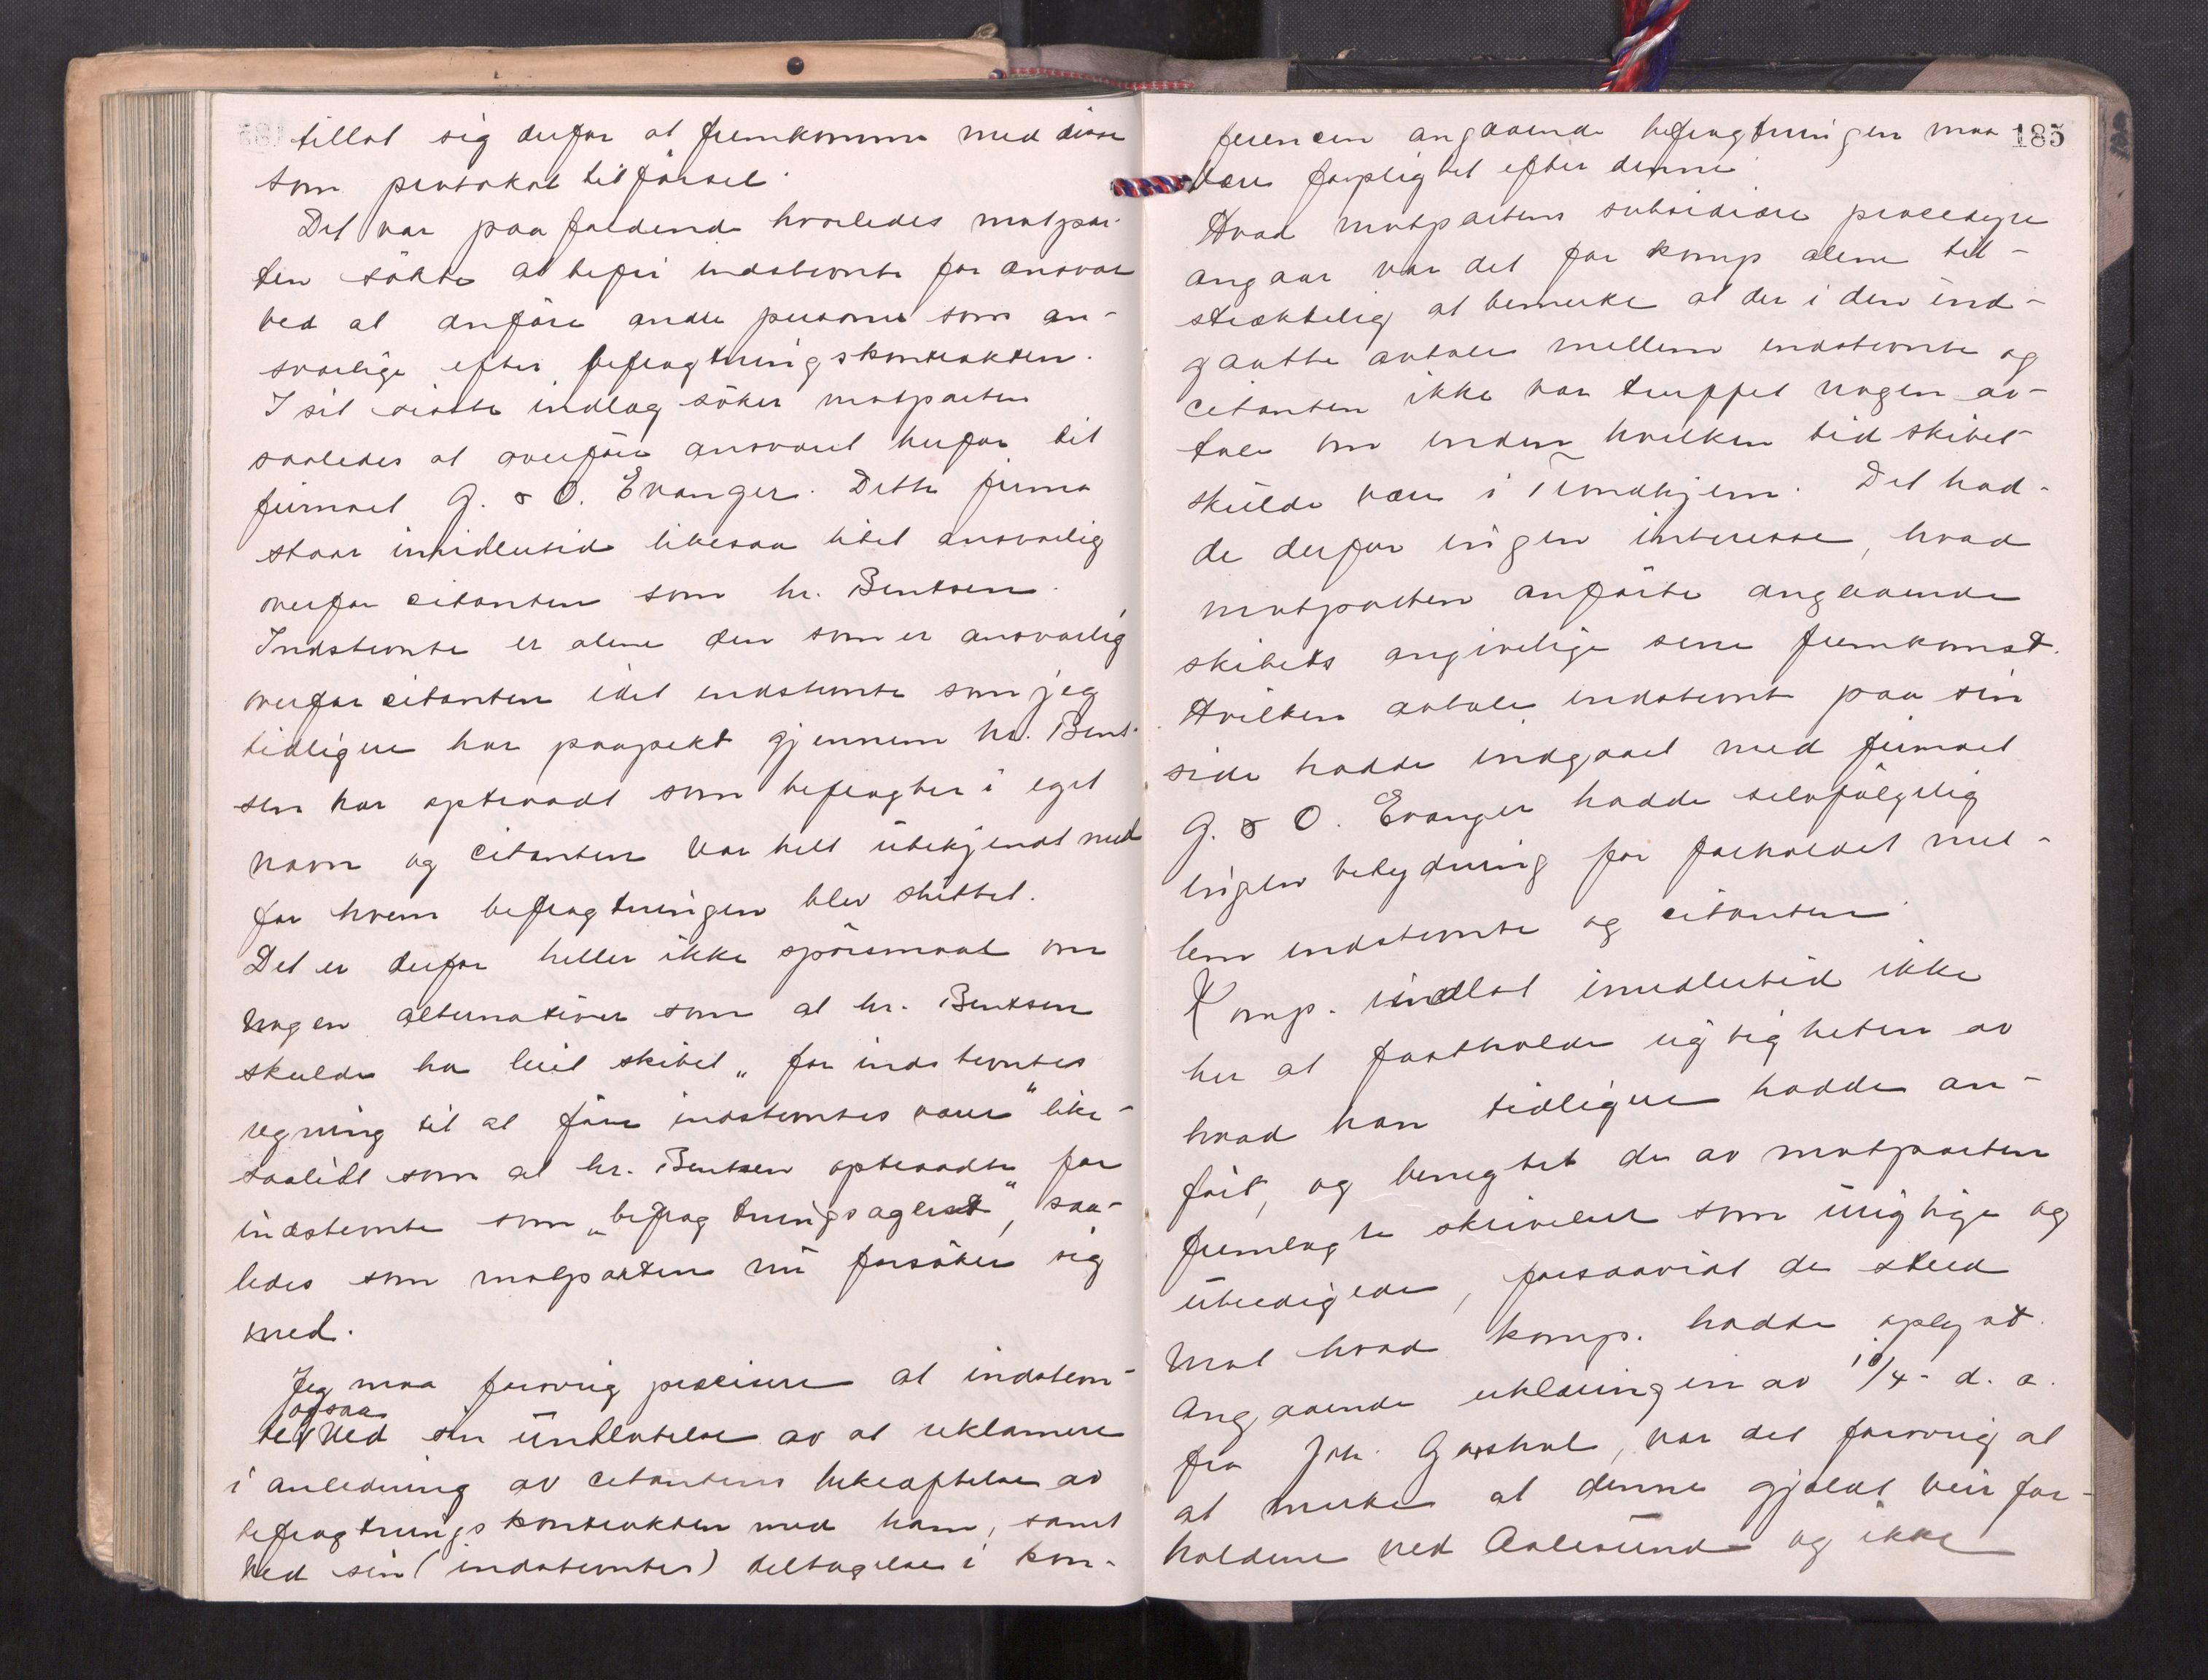 tillot sig derfor at fremkomme med disse
som protokoltilførsel.
Det var paafaldende hvorledes motpar-
ten søkte at befri indstevnte for ansvar
ved at anføre andre personer som an-
svarlige efter befragtningskontrakten.
I sit siste indlæg søker motparten
saaledes at overføre ansvaret herfor til
firmaet G. & O. Evanger. Dette firma
staar imidlertid likesaa litet ansvarlig
overfor citanten som hr. Bentsen.
Indstevnte er alene den som er ansvarlig
overfor citanten idet indstevnte som jeg
tidligere har paapekt gjennem hr. Bent-
sen har optraadt som befragter i eget
navn og citanten var helt ubekjendt med
for hvem befragtningen blev sluttet.
Det er derfor heller ikke spørsmaal om
nogen alternativer som at hr. Bentsen
skulde ha leiet skibet „for indstevntes
regning til at føre indstevntes varer" like-
saalitt som at hr. Bentsen optraadte for
indstevnte som „befragtningsagent", saa-
ledes som motparten nu forsøker sig
med.
Jeg maa forøvrig præcisere at indstevn-
ogsaa
te ved sin undlatelse av at reklamere
i anledning av citantens bekræftelse av
befragtningskontrakten med ham, samt
ved sin (indstevntes) deltagelse i kon-
185
ferencen angaaende befragtningen maa
være forpligtet efter denne.
Hvad motpartens subsidiære procedyre
angaar var det for komp alene til-
strækkelig at bemerke at der i den ind-
gaatte avtale mellem indstevnte og
citanten ikke var truffet nogen av-
tale om inden hvilken tid skibet
skulde være i Trondhjem. Det had-
de derfor ingen interesse, hvad
motparten anførte angaaende
skibets angivelige sene fremkomst.
Hvilken avtale indstevnte paa sin
side hadde indgaaet med firmaet
G. & O. Evanger hadde selvfølgelig
ingen betydning for forholdet mel-
lem indstevnte og citanten.
Komp. undlot imidlertid ikke
her at fastholde rigtigheten av
hvad han tidligere hadde an-
ført, og benegtet de av motparten
fremlagte skrivelser som urigtige og
ubeedigede, forsaavidt de stred
mot hvad komp. hadde oplyst.
Angaaende erklæringen av 10/4- d. a.
fra Joh. Gjøshol, var det forøvrig at
at merke at denne gjaldt veirfor-
holdene ved Aalesund og ikke